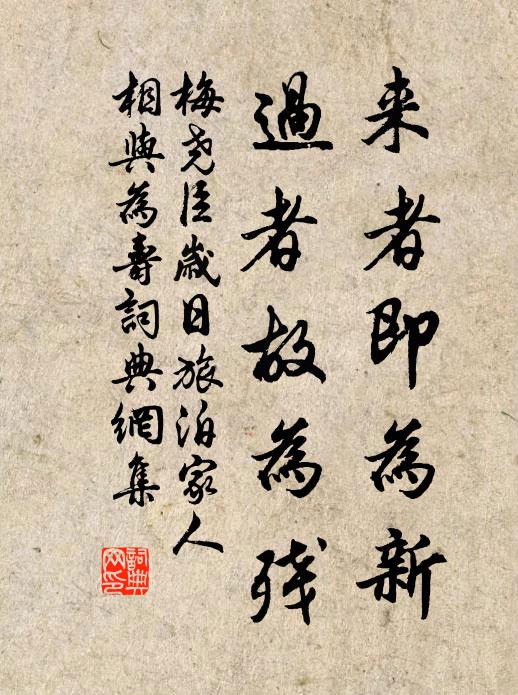 来者即為新
過者故為残
梅尧臣歲日旅泊家人
相與為壽詞典網集
詞典网印